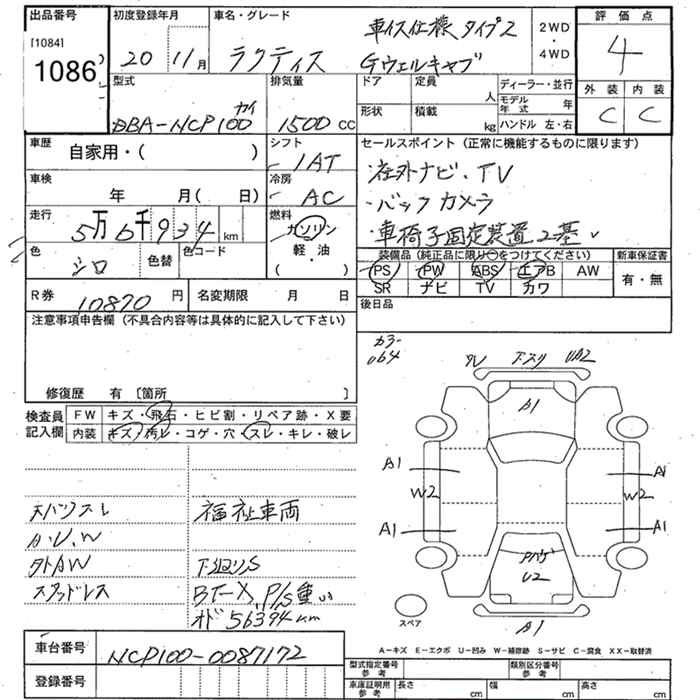 出品番号
[1084]
1086
初度登録年月
20 11月
車名・グレード
ラクティス
車イス仕様 タイプ2
Gウェルキャブ
2WD
・
4WD
評価点
4
外装 内装
C C
型式
DBA-NCP100 カイ
排気量
1500 CC
ドア
定員
人
形状
積載
kg
ディーラー・並行
モデル年式 年
ハンドル 左・右
車歴
自家用・( )
シフト
IAT
車検
年 月( 日)
冷房
AC
走行
5万6千934 km
燃料
ガソリン
軽・油
( )
色
シロ
色替
色コード
セールスポイント(正常に機能するものに限ります)
・社外ナビ・TV
・バックカメラ
・車椅子固定装置2基
装備品(純正品に限り○をつけてください)
PS PW ABS エアB AW
SR ナビ TV カワ
新車保証書
有・無
R券
10870 円
名変期限 月 日
後日品
注意事項申告欄(不具合内容等は具体的に記入して下さい)
修復歴 有 [箇所 ]
検査員記入欄
FW キズ・飛石・ヒビ割・リペア跡・X要
内装 キズ・汚レ・コゲ・穴・スレ・キレ・破レ
福祉車両
外AW
オド 56394km
A1
A1 W2 A1
W2 A1 A1
U2
A1
スペア
A-キズ E-エクボ U-凹み W-補修跡 S-サビ C-腐食 XX-取替済
車台番号
NCP100-0087172
登録番号
型式指定番号 参考
類別区分番号 参考
車庫証明用 参考
長さ cm
幅 cm
高さ cm